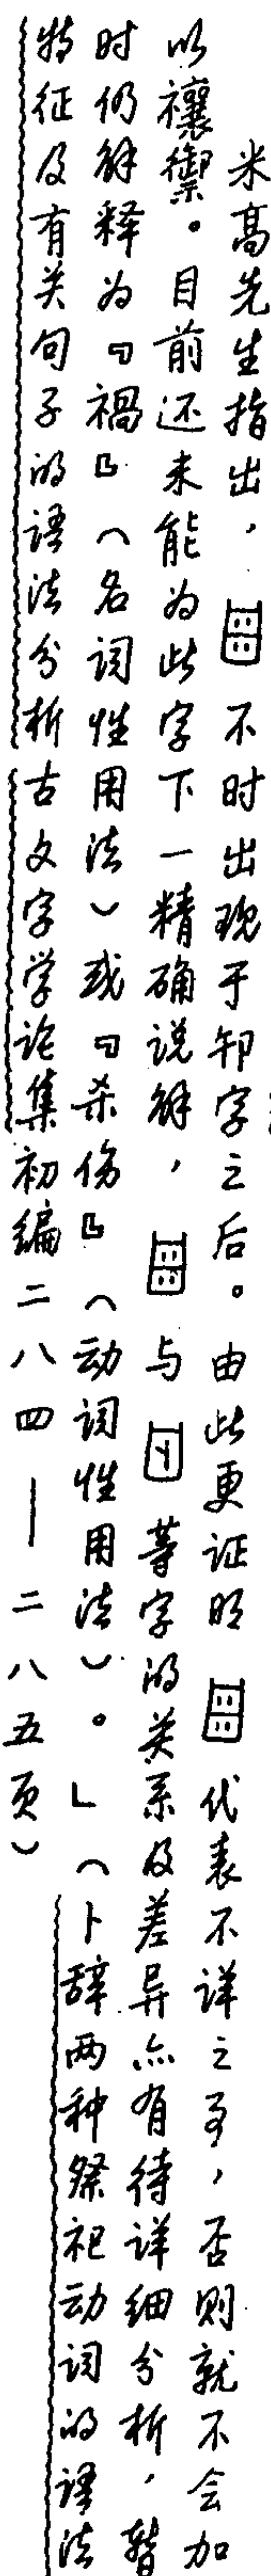 米高先生指出，不时出现于䘏字之后。由此更证明代表不详之事，否则就不会加
以禳禦。目前还未能为此字下一精确说解，与等字的关系及差异亦有待详细分析，暂
时仍解释为『祸』（名词性用法）或『杀伤』（动词性用法）。」（卜辞两种祭祀动词的语法
特征及有关句子的语法分析古文字学论集初编二八四——二八五页）